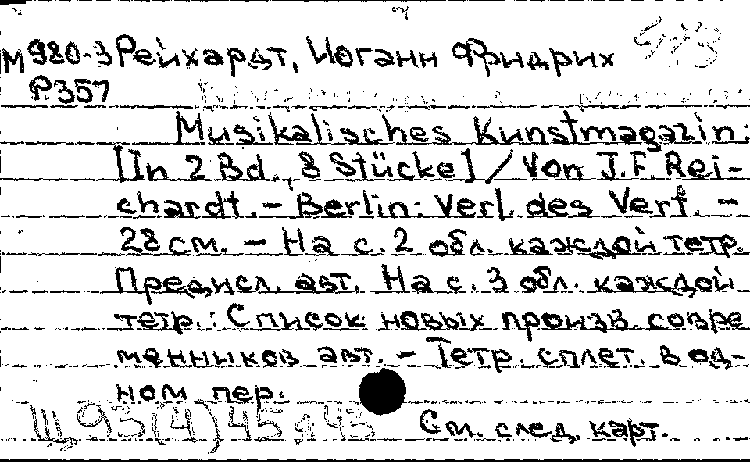 М 980-3 Рейхардт, Иоганн Фридрих 
Р357
Musikalisches Kunstmagazin:
[In 2 Bd., 8 Stücke] / Von J.F. Rei-
chardt. – Berlin: Verl. des Verf. –
28 см. – На с. 2 обл. каждой тетр.
Предисл. авт. На с. 3 обл. каждой
тетр.: Список новых произв. совре
менников авт. – Тетр. сплет. в од-
ном пер.
Щ93(4)45я43 См. след. карт.